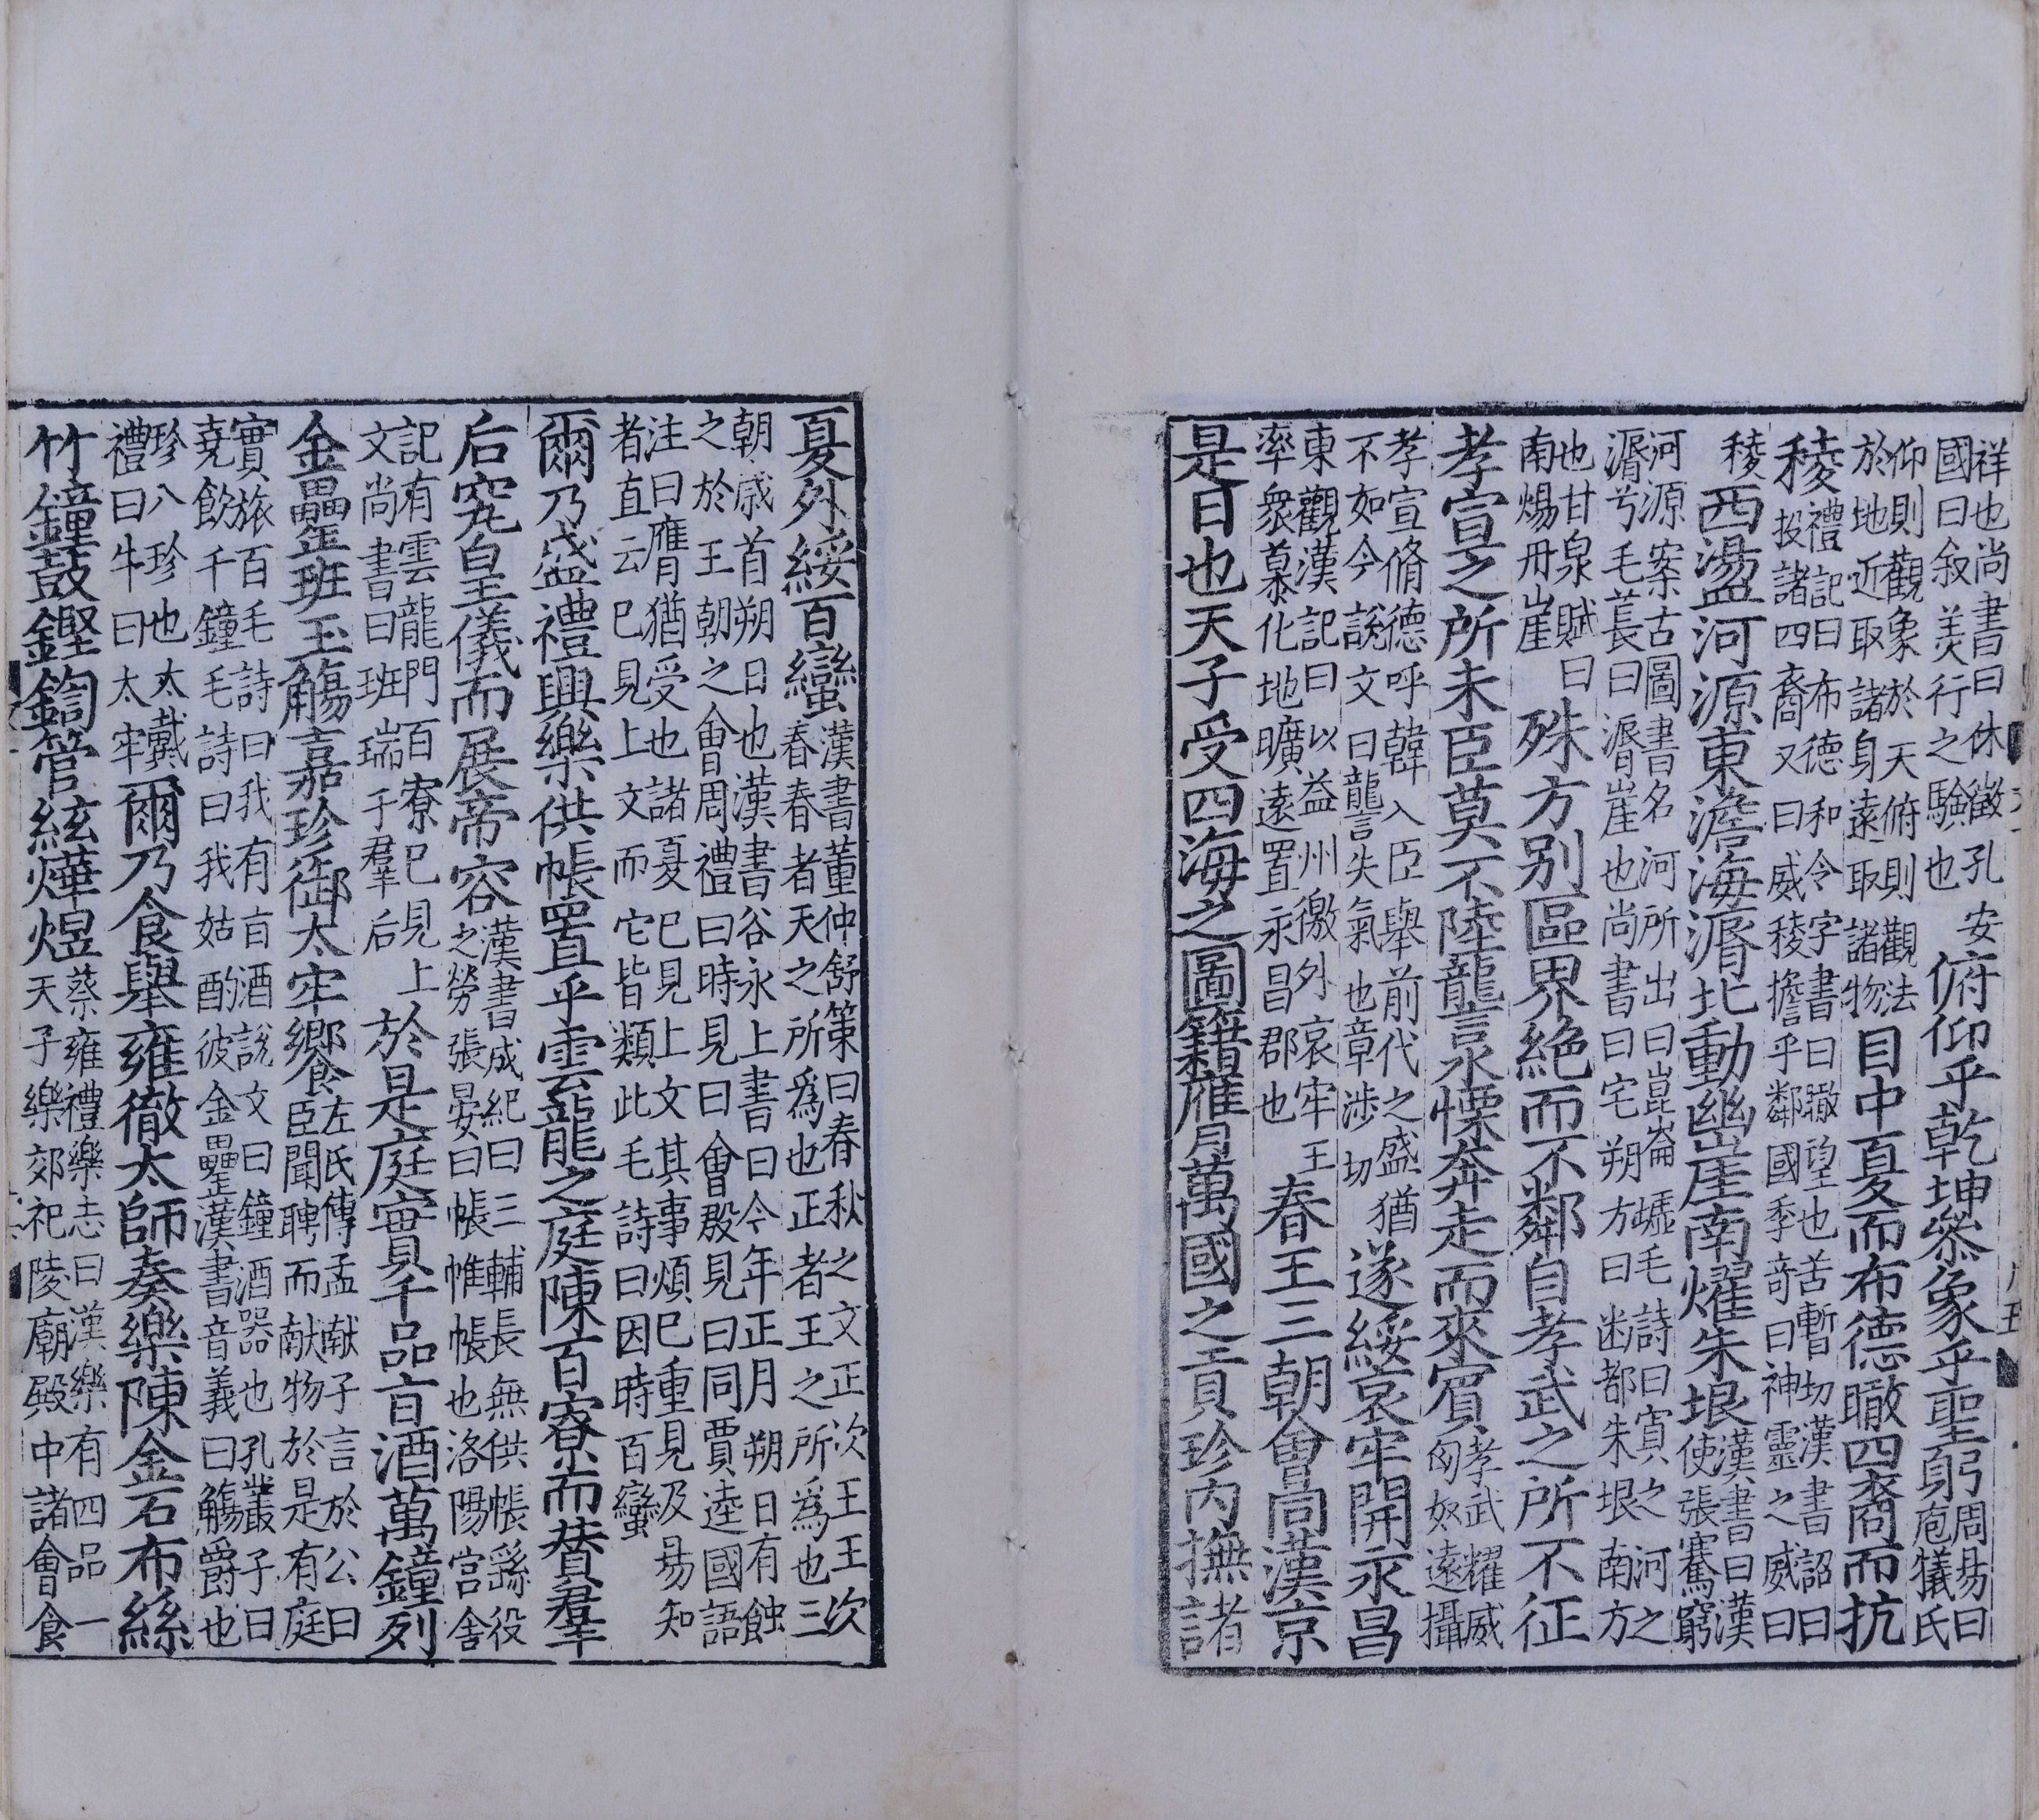 祥也尚書曰休徵孔安國曰叙美行之驗也俯仰乎乾坤參象乎聖躬周易曰庖犧氏
仰則觀象於天俯則觀法於地近取諸身遠取諸物目中夏而布德瞰四裔而抗
稜禮記曰布德和令字書曰瞰望也苦暫切漢書詔曰投諸四裔又曰威稜憺乎鄰國李奇曰神靈之威曰
稜西盪河源東澹海漘北動幽崖南燿朱垠漢書曰漢使張騫窮
河源案古圖書名河所出曰崑崙墟毛詩曰寘之河之漘兮毛萇曰漘崖也尚書曰宅朔方曰幽都朱垠南方
也甘泉賦曰南煬丹崖殊方别區界絶而不鄰自孝武之所不征
孝宣之所未臣莫不陸讋水慄奔走而來賓孝武耀威匈奴遠攝
孝宣脩德呼韓入臣舉前代之盛猶不如今說文曰讋失氣也章涉切遂綏哀牢開永昌
東觀漢記曰以益州徼外哀牢王率衆慕化地曠遠置永昌郡也春王三朝會同漢京
是日也天子受四海之圖籍膺萬國之貢珍内撫諸
夏外綏百蠻漢書董仲舒策曰春秋之文正次王王次春春者天之所爲也正者王之所爲也三
朝歲首朔日也漢書谷永上書曰今年正月朔日有蝕之於王朝之會周禮曰時見曰會殷見曰同賈逵國語
注曰膺猶受也諸夏已見上文其事煩已重見及易知者直云已見上文而它皆類此毛詩曰因時百蠻
爾乃盛禮興樂供帳置乎雲龍之庭陳百寮而賛羣
后究皇儀而展帝容漢書成紀曰三輔長無供帳繇役之勞張晏曰帳帷帳也洛陽宫舍
記有雲龍門百寮已見上文尚書曰班瑞于羣后於是庭實千品旨酒萬鐘列
金罍班玉觴嘉珍御太牢饗左氏傳孟献子言於公曰臣聞聘而献物於是有庭
實旅百毛詩曰我有旨酒說文曰鐘酒器也孔叢子曰堯飲千鐘毛詩曰我姑酌彼金罍漢書音義曰觴爵也
珍八珍也大戴禮曰牛曰太牢爾乃食舉雍徹太師奏樂陳金石布絲
竹鐘鼓鏗鍧管絃燁煜蔡雍禮樂志曰漢樂有四品一天子樂郊祀陵廟殿中諸會食